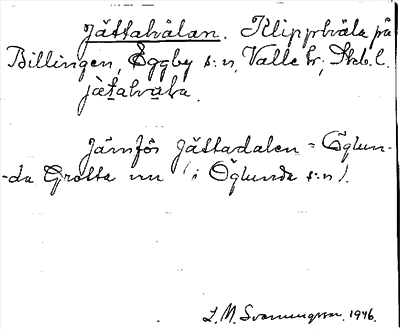 Jättahålan. Klipphåla på
Billingen, Eggby s:n, Valle hr, Skb.l.
jät̠ahvḁla.
Jämför Jättadalen = Öglun-
-da Grotta nu (i Öglunda s:n).
L. M. Svanungsson. 1946.